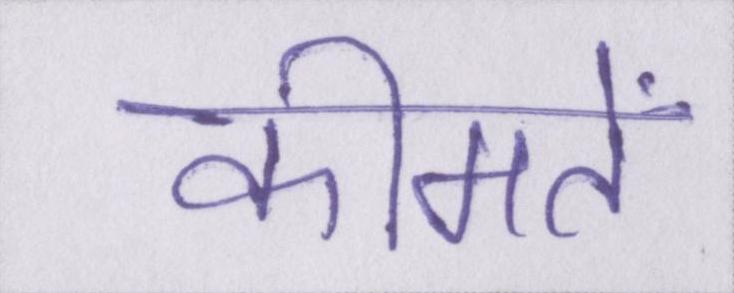 कीमतें